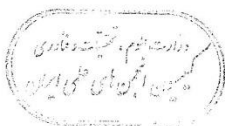 وزارت علوم، تحقیقات و فناوری
کمیسیون انجمن‌های علمی ایران